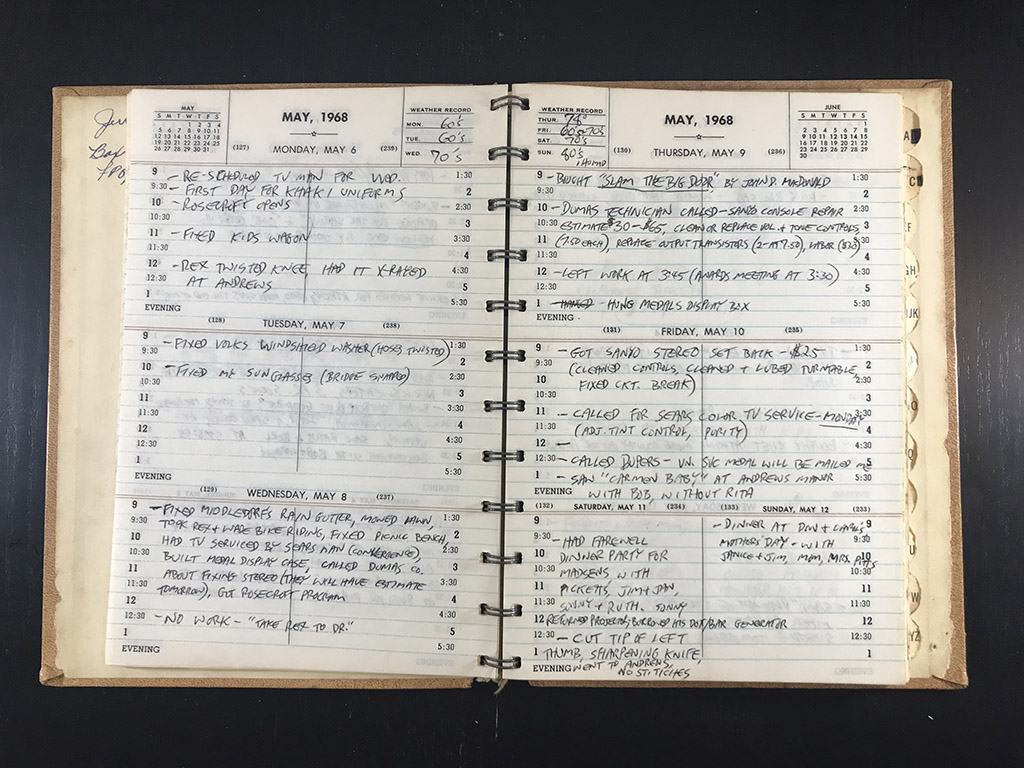 Jerr
Box
MAY
S M T W T F S
1 2 3 4
5 6 7 8 9 10 11
12 13 14 15 16 17 18
19 20 21 22 23 24 25
26 27 28 29 30 31
MAY, 1968
(127) MONDAY, MAY 6 (239)
WEATHER RECORD
MON. 60's
TUE. 60's
WED. 70's
9 – RE-SCHEDULED TV MAN FOR WED. 1:30
9:30 – FIRST DAY FOR KHAKI UNIFORMS 2
10 – ROSECROFT OPENS 2:30
10:30 3
11 – FIXED KIDS WAGON 3:30
11:30 4
12 – REX TWISTED KNEE, HAD IT X-RAYED 4:30
12:30 AT ANDREWS 5
1 5:30
EVENING
(128) TUESDAY, MAY 7 (238)
9 – FIXED VOLKS WINDSHIELD WASHER (HOSES TWISTED) 1:30
9:30 2
10 – FIXED MY SUNGLASSES (BRIDGE SNAPPED) 2:30
10:30 3
11 3:30
11:30 4
12 4:30
12:30 5
1 5:30
EVENING
(129) WEDNESDAY, MAY 8 (237)
9 – FIXED MIDDLEDORFS RAIN GUTTER, MOWED LAWN, 1:30
9:30 TOOK REX + WADE BIKE RIDING, FIXED PICNIC BENCH, 2
10 HAD TV SERVICED BY SEARS MAN (CONVERGENCE), 2:30
10:30 BUILT MEDAL DISPLAY CASE, CALLED DUMAS CO. 3
11 ABOUT FIXING STEREO (THEY WILL HAVE ESTIMATE 3:30
11:30 TOMORROW), GOT ROSECROFT PROGRAM 4
12 4:30
12:30 – NO WORK – "TAKE REX TO DR." 5
1 5:30
EVENING
WEATHER RECORD
THUR. 78°
FRI. 60's-70's
SAT. 70's
SUN. 80's
HUMID
MAY, 1968
(130) THURSDAY, MAY 9 (236)
JUNE
S M T W T F S
1
2 3 4 5 6 7 8
9 10 11 12 13 14 15
16 17 18 19 20 21 22
23 24 25 26 27 28 29
30
9 – BOUGHT "SLAM THE BIG DOOR," BY JOHN D. MACDONALD 1:30
9:30 2
10 – DUMAS TECHNICIAN CALLED – SANYO CONSOLE REPAIR 2:30
10:30 ESTIMATE $30 – $65, CLEAN OR REPLACE VOL. + TONE CONTROLS, 3
11 (7.50 EACH), REPLACE OUTPUT TRANSISTORS (2-AT 7.50), LABOR ($20) 3:30
11:30 4
12 – LEFT WORK AT 3:45 (AWARDS MEETING AT 3:30) 4:30
12:30 5
1 – HUNG MEDALS DISPLAY BOX 5:30
EVENING
(131) FRIDAY, MAY 10 (235)
9 – GOT SANYO STEREO SET BACK – $25 1:30
9:30 (CLEANED CONTROLS, CLEANED + LUBED TURNTABLE, 2
10 FIXED CKT. BREAK) 2:30
10:30 3
11 – CALLED FOR SEARS COLOR TV SERVICE – MONDAY 3:30
11:30 (ADJ. TINT CONTROL, PURITY) 4
12 – 4:30
12:30 – CALLED DUPERS – VN. SVC MEDAL WILL BE MAILED ME 5
1 – SAW "CARMEN BABY" AT ANDREWS MANOR 5:30
EVENING WITH BOB, WITHOUT RITA
(132) SATURDAY, MAY 11 (234) (133) SUNDAY, MAY 12 (233)
9
9:30 – HAD FAREWELL
10 DINNER PARTY FOR
10:30 MADSENS WITH
11 PICKETTS, JIM + JAN,
11:30 SONNY + RUTH. SONNY
12 RETURNED PROJECTOR, BORROWED HIS DOT/BAR GENERATOR
12:30 – CUT TIP OF LEFT
1 THUMB, SHARPENING KNIFE,
EVENING WENT TO ANDREWS,
NO STITCHES
– DINNER AT DIN + CAROL'S 9
MOTHERS' DAY – WITH 9:30
JANICE + JIM, MOM, MRS. PITTS 10
10:30
11
11:30
12
12:30
1
A
C
EF
GH
IJK
O
U
W
YZ